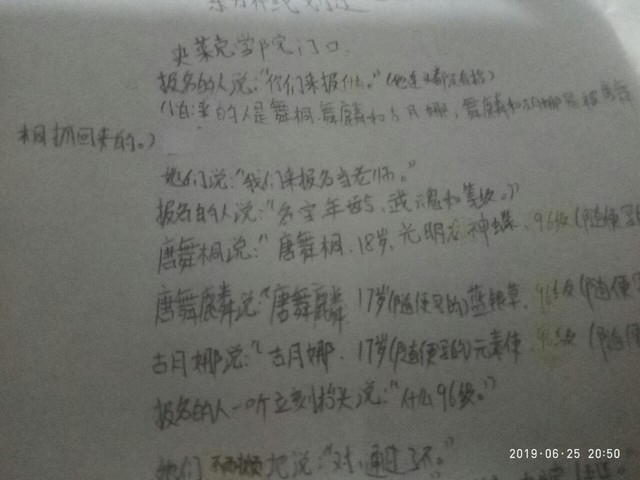 史莱克学院门口.
报名的人说:"你们来报什么。"(他连头都没有抬)
(白:来的人是舞桐.舞麟和古月娜,舞麟和古月娜是被舞
桐抓回来的。)
她们说:"我们来报名当老师。"
报名的人说:"名字年龄、武魂和等级。")
唐舞桐说:"唐舞桐.18岁、光明龙神蝶、96级(随便写的
唐舞麟说:"唐舞麟 17岁(随便写的)蓝银草、96级(随便写
古月娜说:"古月娜、17岁(随便写的)元素使、96级(随便
报名的人一听立刻抬头说:"什么96级。")
她们 不耐烦地说:"对,通过了不。"
2019-06-25 20:50